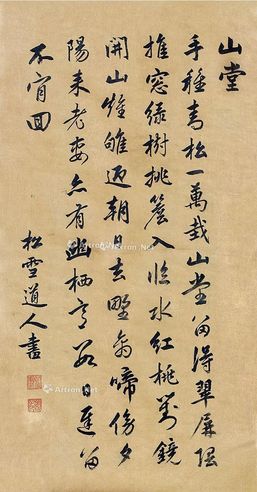 山堂
手種青松一萬栽山堂留得翠屏隈
推窓綠樹挑簷入臨水紅桃對鏡
開山雉雊迎朝日去野禽啼傍夕
陽來老妻亦有幽栖意數日遲留
不肯回
松雪道人書
Artron.Net